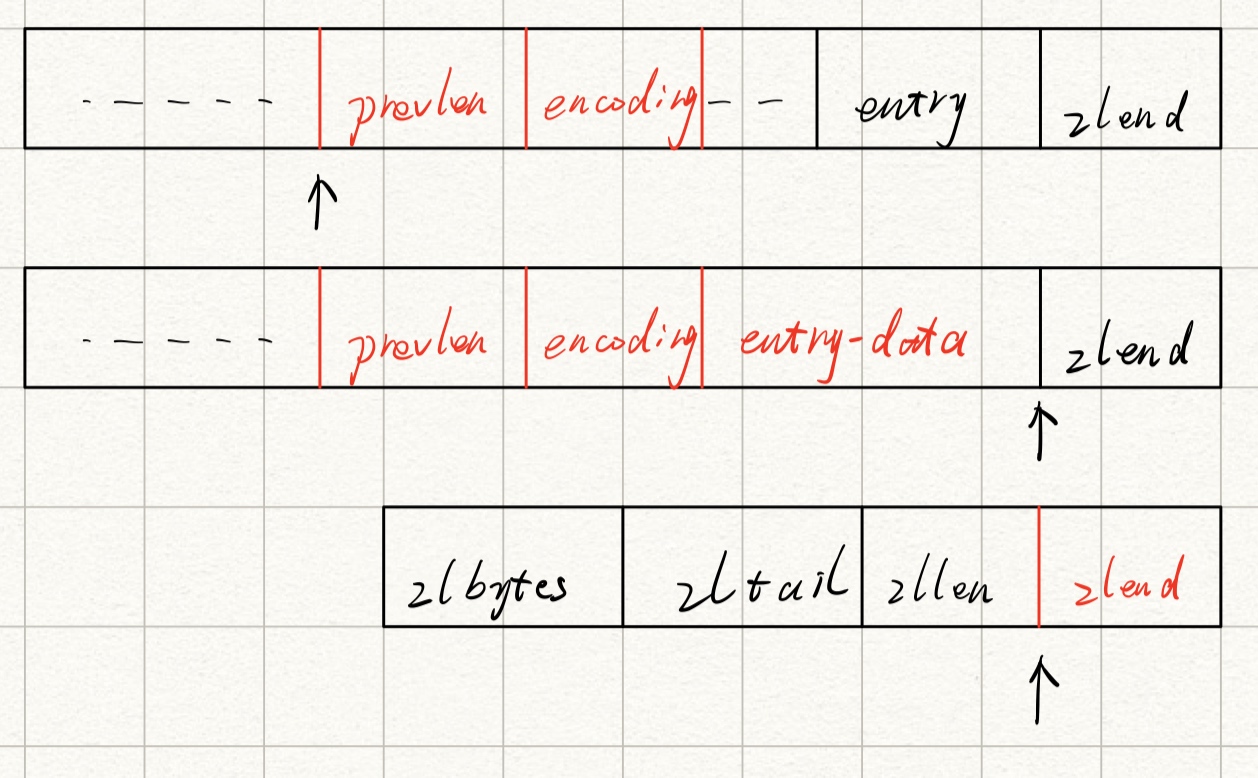 ----- prevlen encoding -- entry zlend
----- prevlen encoding entry-data zlend
zlbytes zltail zllen zlend